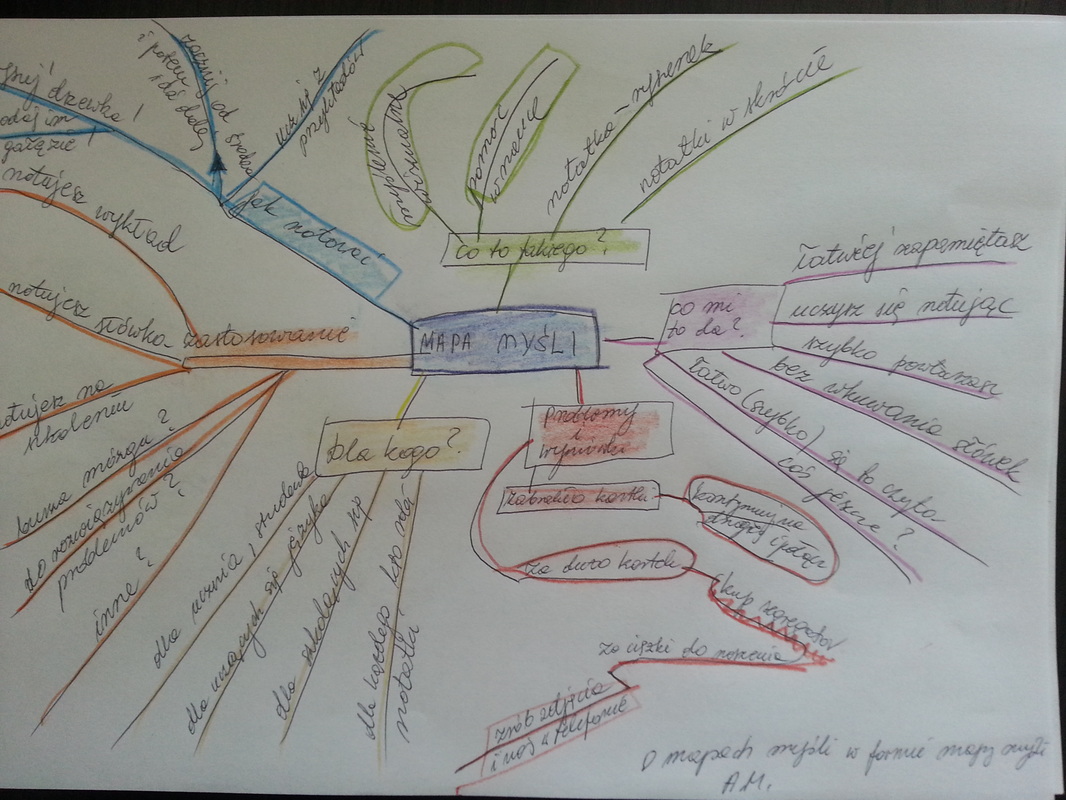 MAPA MYŚLI
jak notować
drzewka!
gałęzie!
zacznij od środka
i potem
idź dalej
ucz się z
przykładów
co to takiego?
wizualne
pomoc
w nauce
notatka-rysunek
notatki w skrócie
co mi
to da?
łatwiej zapamiętasz
uczysz się notując
szybko powtarzasz
bez wkuwania słówek
łatwo (szybko) się to czyta
coś jeszcze?
Problemy
i
wyzwiska
zabrakło kartki
kontynuuj na
drugiej i połącz
za dużo kartek
kup segregator
za ciężki do noszenia
zrób zdjęcia
i noś w telefonie
Dla kogo?
dla ucznia, studenta
dla uczących się języka
dla szkolących się
dla każdego, kto robi
notatki
zastosowanie
notujesz wykład
notujesz słówka
na
szkoleniu
burza mózgu?
do rozwiązywania
problemów?
inne?
O mapach myśli w formie mapy myśli
A.M.